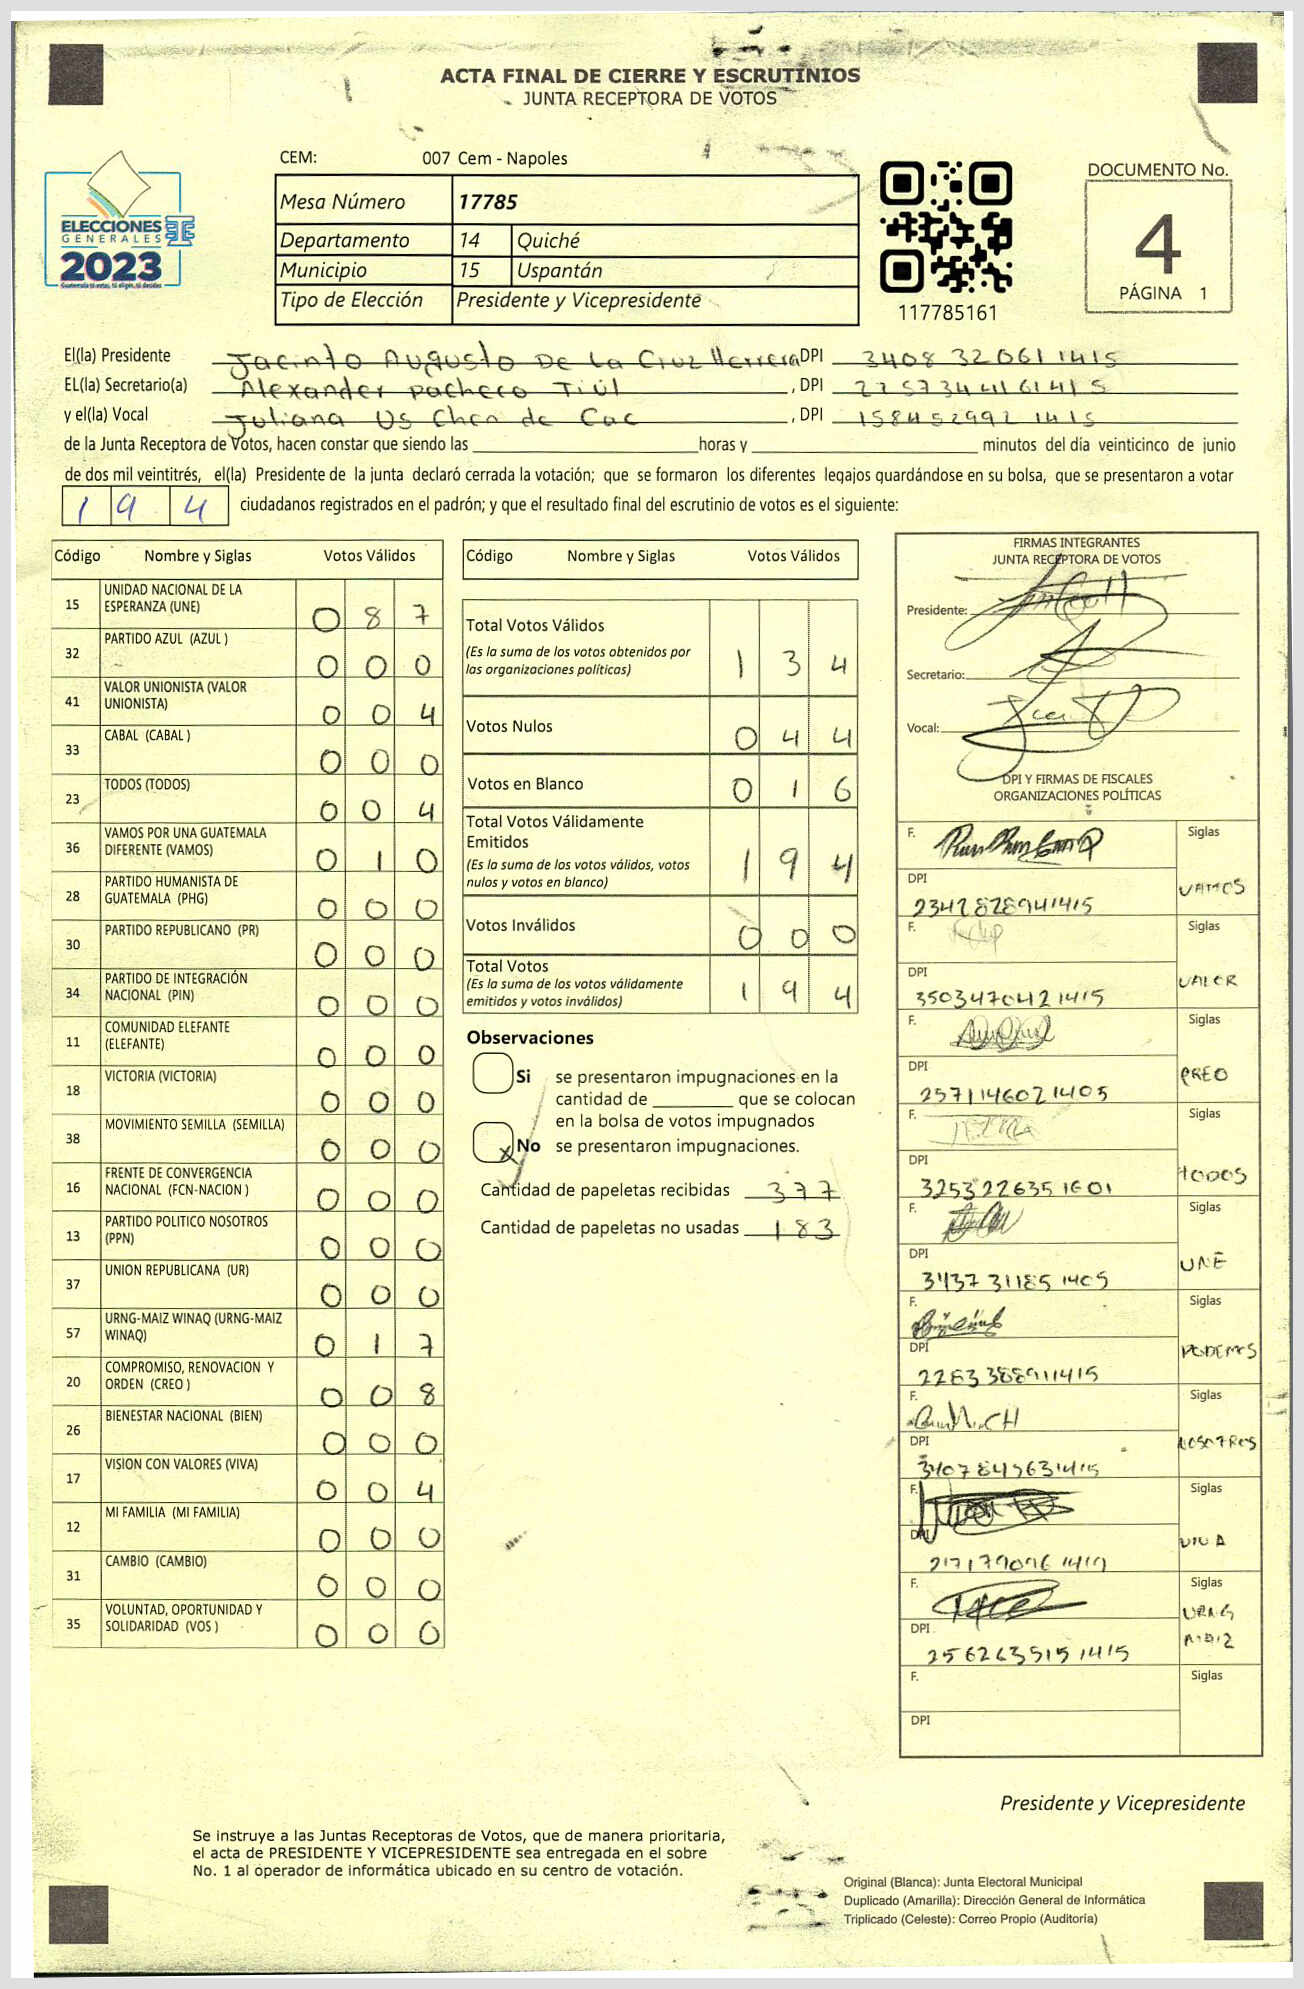 ACTA FINAL DE CIERRE Y ESCRUTINIOS
JUNTA RECEPTORA DE VOTOS
ELECCIONES
GENERALES
2023
Guatemala tú votas, tú eliges, tú decides
CEM: 007 Cem - Napoles
Mesa Número 17785
Departamento 14 Quiché
Municipio 15 Uspantán
Tipo de Elección Presidente y Vicepresidente
117785161
DOCUMENTO No.
4
PÁGINA 1
El(la) Presidente Jacinto Augusto De La Cruz Herrera DPI 3408 32061 1415
EL(la) Secretario(a) Alexander pacheco Tiúl , DPI 2257344161415
y el(la) Vocal Juliana Us Chen de Cac , DPI 158452992 1415
de la Junta Receptora de Votos, hacen constar que siendo las horas y minutos del día veinticinco de junio
de dos mil veintitrés, el(la) Presidente de la junta declaró cerrada la votación; que se formaron los diferentes legajos guardándose en su bolsa, que se presentaron a votar
194 ciudadanos registrados en el padrón; y que el resultado final del escrutinio de votos es el siguiente:
Código Nombre y Siglas Votos Válidos
15 UNIDAD NACIONAL DE LA ESPERANZA (UNE) 0 8 7
32 PARTIDO AZUL (AZUL ) 0 0 0
41 VALOR UNIONISTA (VALOR UNIONISTA) 0 0 4
33 CABAL (CABAL ) 0 0 0
23 TODOS (TODOS) 0 0 4
36 VAMOS POR UNA GUATEMALA DIFERENTE (VAMOS) 0 1 0
28 PARTIDO HUMANISTA DE GUATEMALA (PHG) 0 0 0
30 PARTIDO REPUBLICANO (PR) 0 0 0
34 PARTIDO DE INTEGRACIÓN NACIONAL (PIN) 0 0 0
11 COMUNIDAD ELEFANTE (ELEFANTE) 0 0 0
18 VICTORIA (VICTORIA) 0 0 0
38 MOVIMIENTO SEMILLA (SEMILLA) 0 0 0
16 FRENTE DE CONVERGENCIA NACIONAL (FCN-NACION ) 0 0 0
13 PARTIDO POLITICO NOSOTROS (PPN) 0 0 0
37 UNION REPUBLICANA (UR) 0 0 0
57 URNG-MAIZ WINAQ (URNG-MAIZ WINAQ) 0 1 7
20 COMPROMISO, RENOVACION Y ORDEN (CREO ) 0 0 8
26 BIENESTAR NACIONAL (BIEN) 0 0 0
17 VISION CON VALORES (VIVA) 0 0 4
12 MI FAMILIA (MI FAMILIA) 0 0 0
31 CAMBIO (CAMBIO) 0 0 0
35 VOLUNTAD, OPORTUNIDAD Y SOLIDARIDAD (VOS ) 0 0 0
Código Nombre y Siglas Votos Válidos
Total Votos Válidos 1 3 4
(Es la suma de los votos obtenidos por
las organizaciones políticas)
Votos Nulos 0 4 4
Votos en Blanco 0 1 6
Total Votos Válidamente
Emitidos 1 9 4
(Es la suma de los votos válidos, votos
nulos y votos en blanco)
Votos Inválidos 0 0 0
Total Votos 1 9 4
(Es la suma de los votos válidamente
emitidos y votos inválidos)
Observaciones
Si se presentaron impugnaciones en la
cantidad de que se colocan
en la bolsa de votos impugnados
x No se presentaron impugnaciones.
Cantidad de papeletas recibidas 377
Cantidad de papeletas no usadas 183
FIRMAS INTEGRANTES
JUNTA RECEPTORA DE VOTOS
Presidente:
Secretario:
Vocal:
DPI Y FIRMAS DE FISCALES
ORGANIZACIONES POLÍTICAS
F. Siglas
DPI VAMOS
2342828941415
F. Siglas
DPI VALOR
3503470421415
F. Siglas
DPI CREO
2571146021405
F. Siglas
DPI TODOS
3253226351601
F. Siglas
DPI UNE
3437311851405
F. Siglas
DPI PODEMOS
2283388911415
F. Siglas
DPI NOSOTROS
3407845631415
F. Siglas
DPI VIVA
F. Siglas
DPI URNG
MAIZ
2562635151415
F. Siglas
DPI
Presidente y Vicepresidente
Se instruye a las Juntas Receptoras de Votos, que de manera prioritaria,
el acta de PRESIDENTE Y VICEPRESIDENTE sea entregada en el sobre
No. 1 al operador de informática ubicado en su centro de votación.
Original (Blanca): Junta Electoral Municipal
Duplicado (Amarilla): Dirección General de Informática
Triplicado (Celeste): Correo Propio (Auditoría)